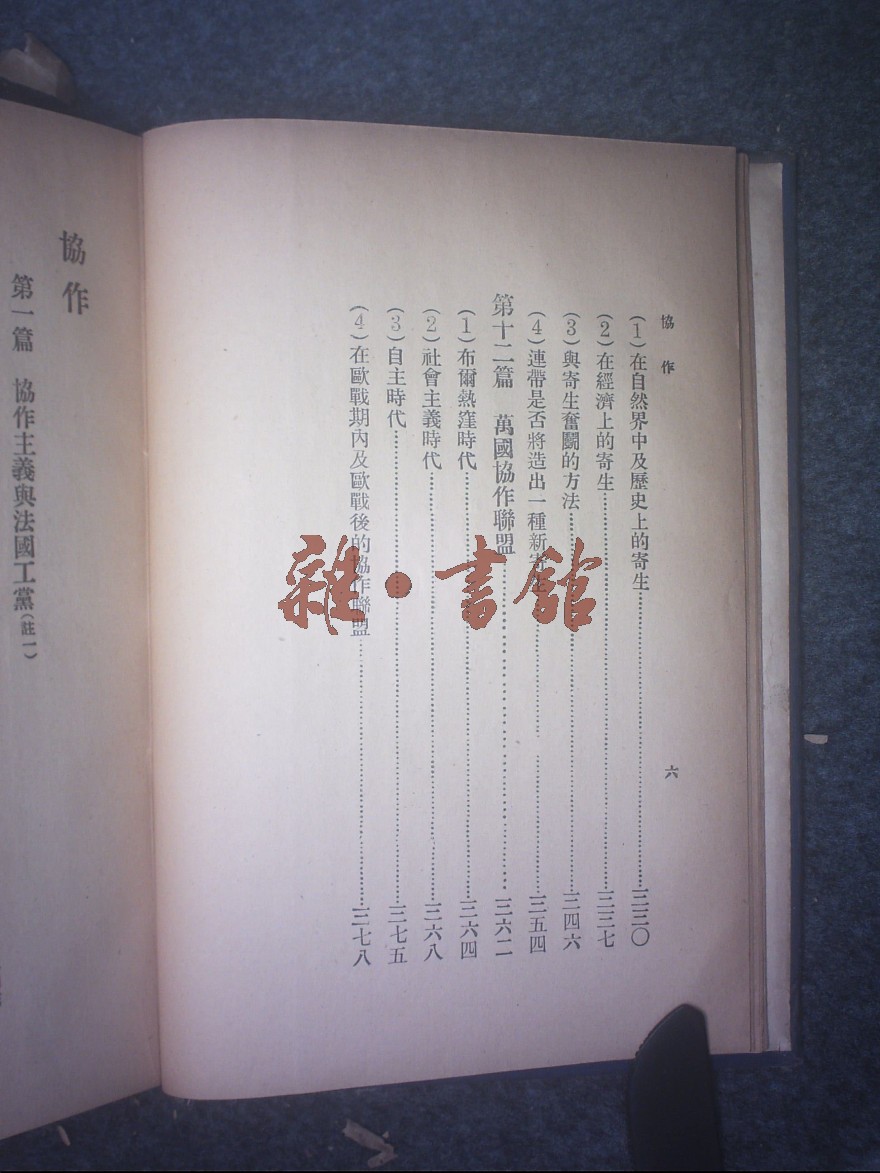 協作
六
(1)在自然界中及歷史上的寄生……三三〇
(2)在經濟上的寄生……三三七
(3)與寄生奮鬭的方法……三四六
(4)連帶是否將造出一種新寄生……三五四
第十二篇 萬國協作聯盟……三六二
(1)布爾熱窪時代……三六四
(2)社會主義時代……三六八
(3)自主時代……三七五
(4)在歐戰期內及歐戰後的協作聯盟……三七八
協作
第一篇 協作主義與法國工黨(註一)
雜·書館